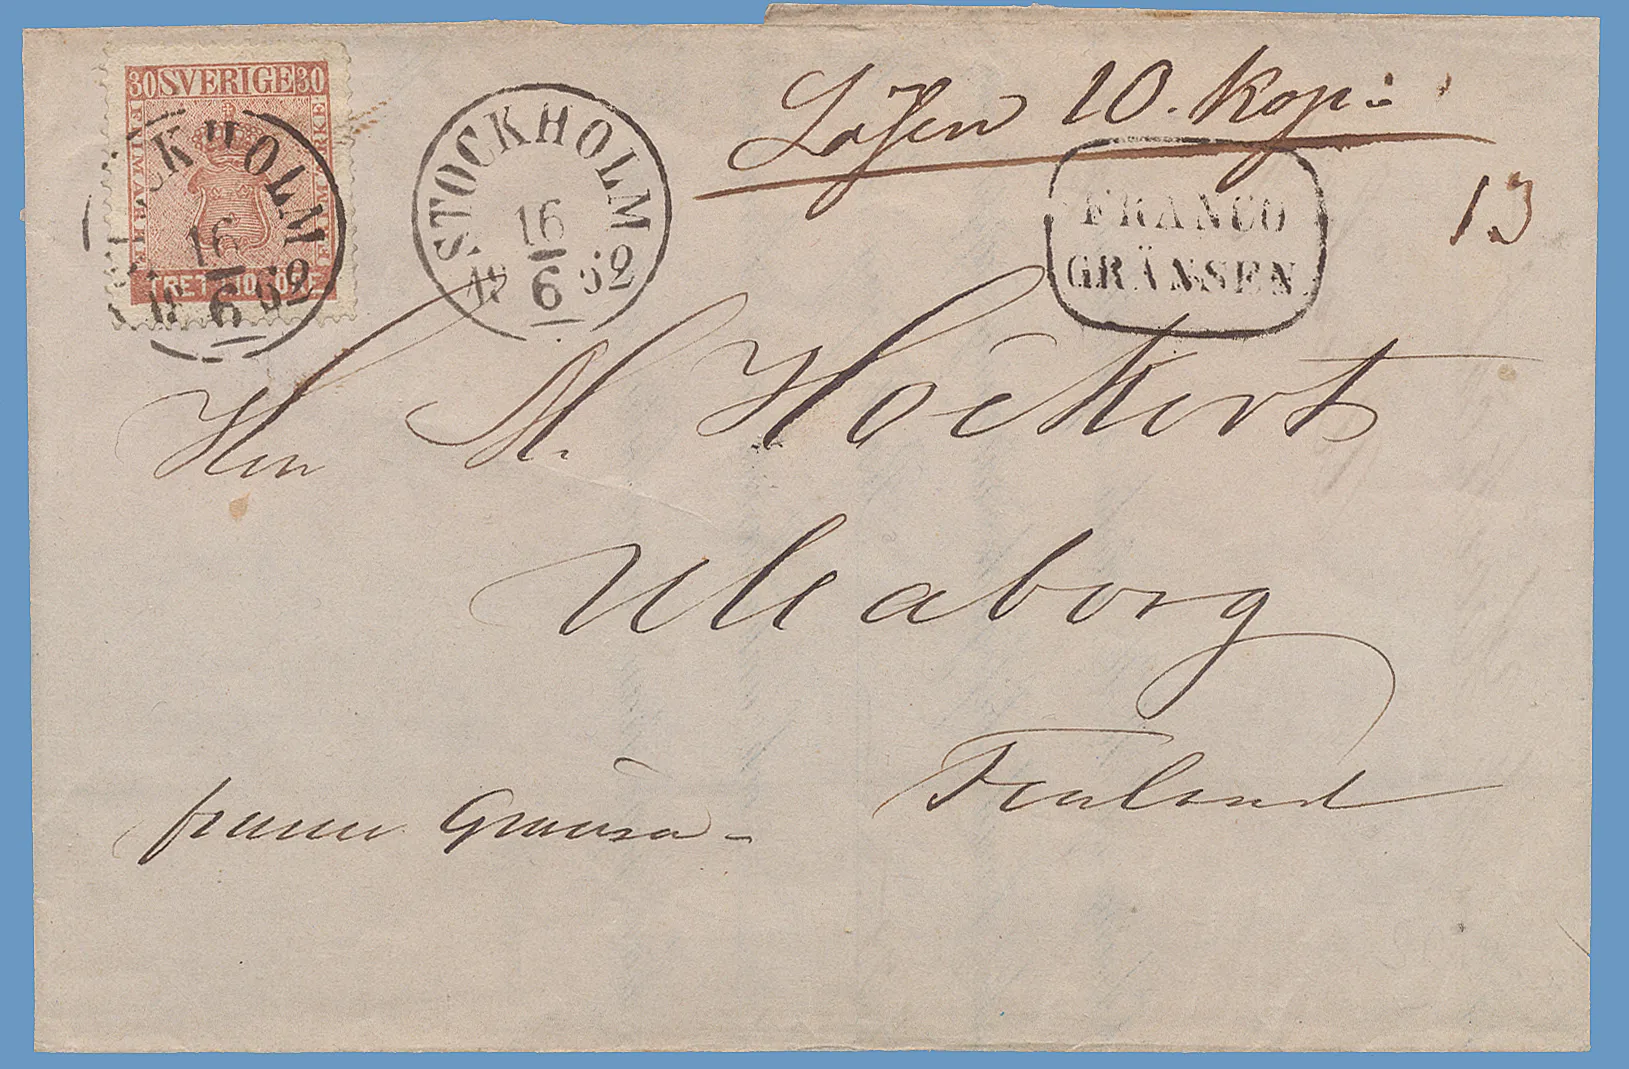 30 SVERIGE 30
FRIMÄRKE
TRETIO ÖRE
STOCKHOLM
16
6
1862
STOCKHOLM
16
6
1862
Lösen 10. Kop:
FRANCO
GRÄNSEN
13
Herr M. Höckert
Uleaborg
Finland
franco Gränsen